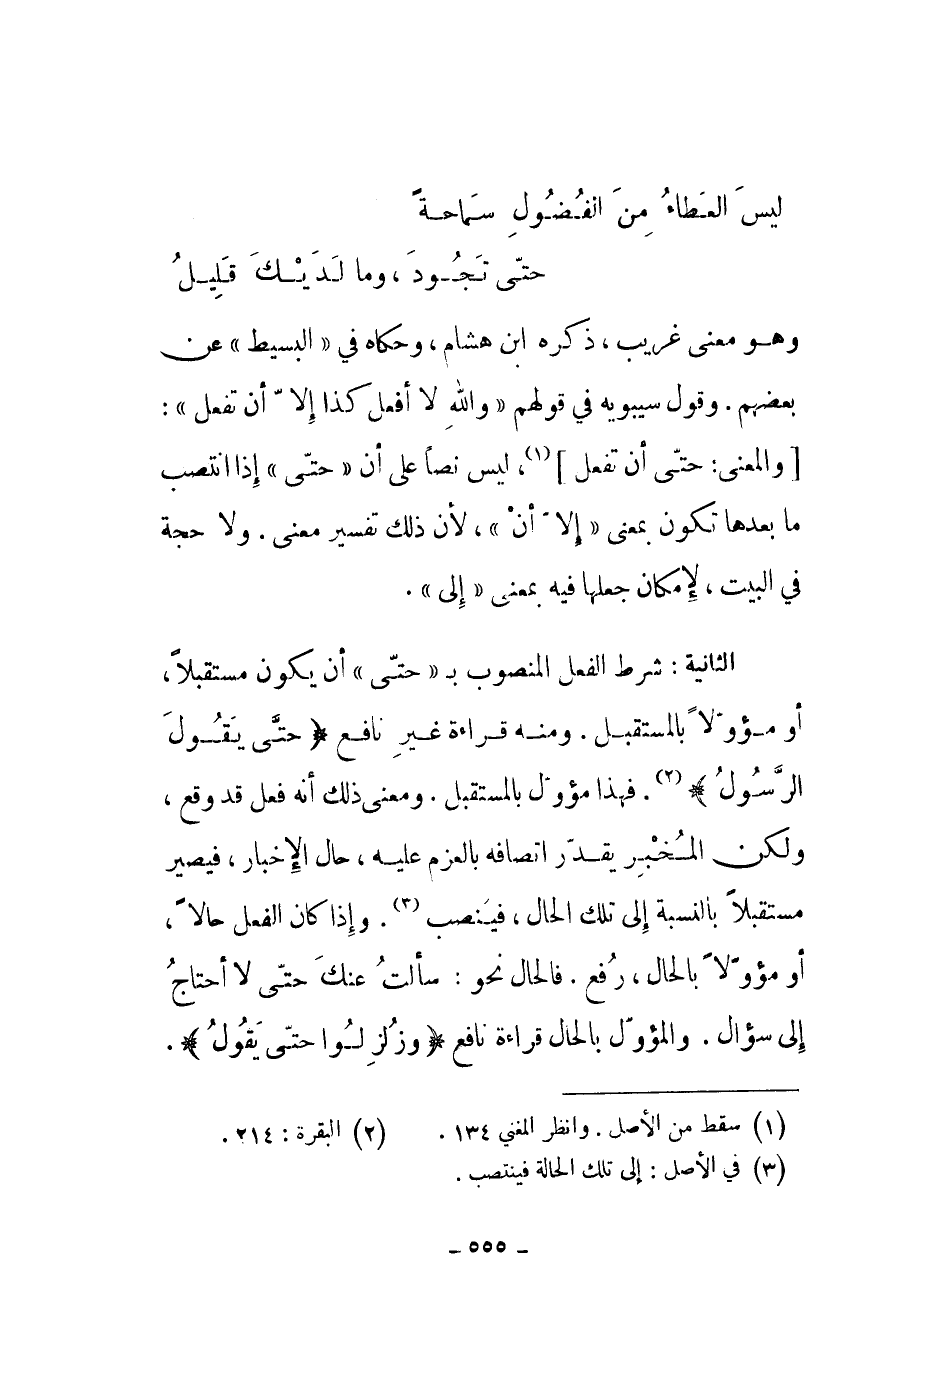 ليسَ العَطاءُ مِنَ الفُضُولِ سَماحةً
حتّى تَجُودَ ، وما لَدَيْكَ قَلِيلُ
وهو معنى غريب ، ذكره ابن هشام ، وحكاه في « البسيط » عن
بعضهم . وقول سيبويه في قولهم « واللهِ لا أفعل كذا إلاّ أن تفعل » :
[ والمعنى : حتّى أن تفعل ](١)، ليس نصاً على أن « حتّى » إذا انتصب
ما بعدها تكون بمعنى « إلاّ أنْ » ، لأن ذلك تفسير معنى . ولا حجة
في البيت ، لإمكان جعلها فيه بمعنى « إلى » .
الثانية : شرط الفعل المنصوب بـ « حتّى » أن يكون مستقبلاً ،
أو مؤوّلاً بالمستقبل . ومنه قراءة غيرِ نافع ﴿ حتَّى يَقُولَ
الرَّسُولُ ﴾ (٢) . فهذا مؤوّل بالمستقبل . ومعنى ذلك أنه فعل قد وقع ،
ولكن المُخْبِر يقدّر اتصافه بالعزم عليه ، حال الإخبار ، فيصير
مستقبلاً بالنسبة إلى تلك الحال ، فيَنصب (٣) . وإذا كان الفعل حالاً ،
أو مؤوّلاً بالحال ، رُفع . فالحال نحو : سألتُ عنكَ حتّى لا أحتاجُ
إلى سؤال . والمؤوّل بالحال قراءة نافع ﴿ وزُلزِلُوا حتّى يَقُولُ ﴾ .
(١) سقط من الأصل . وانظر المغني ١٣٤ . (٢) البقرة : ٢١٤ .
(٣) في الأصل : إلى تلك الحالة فينتصب .
ـ ٥٥٥ ـ